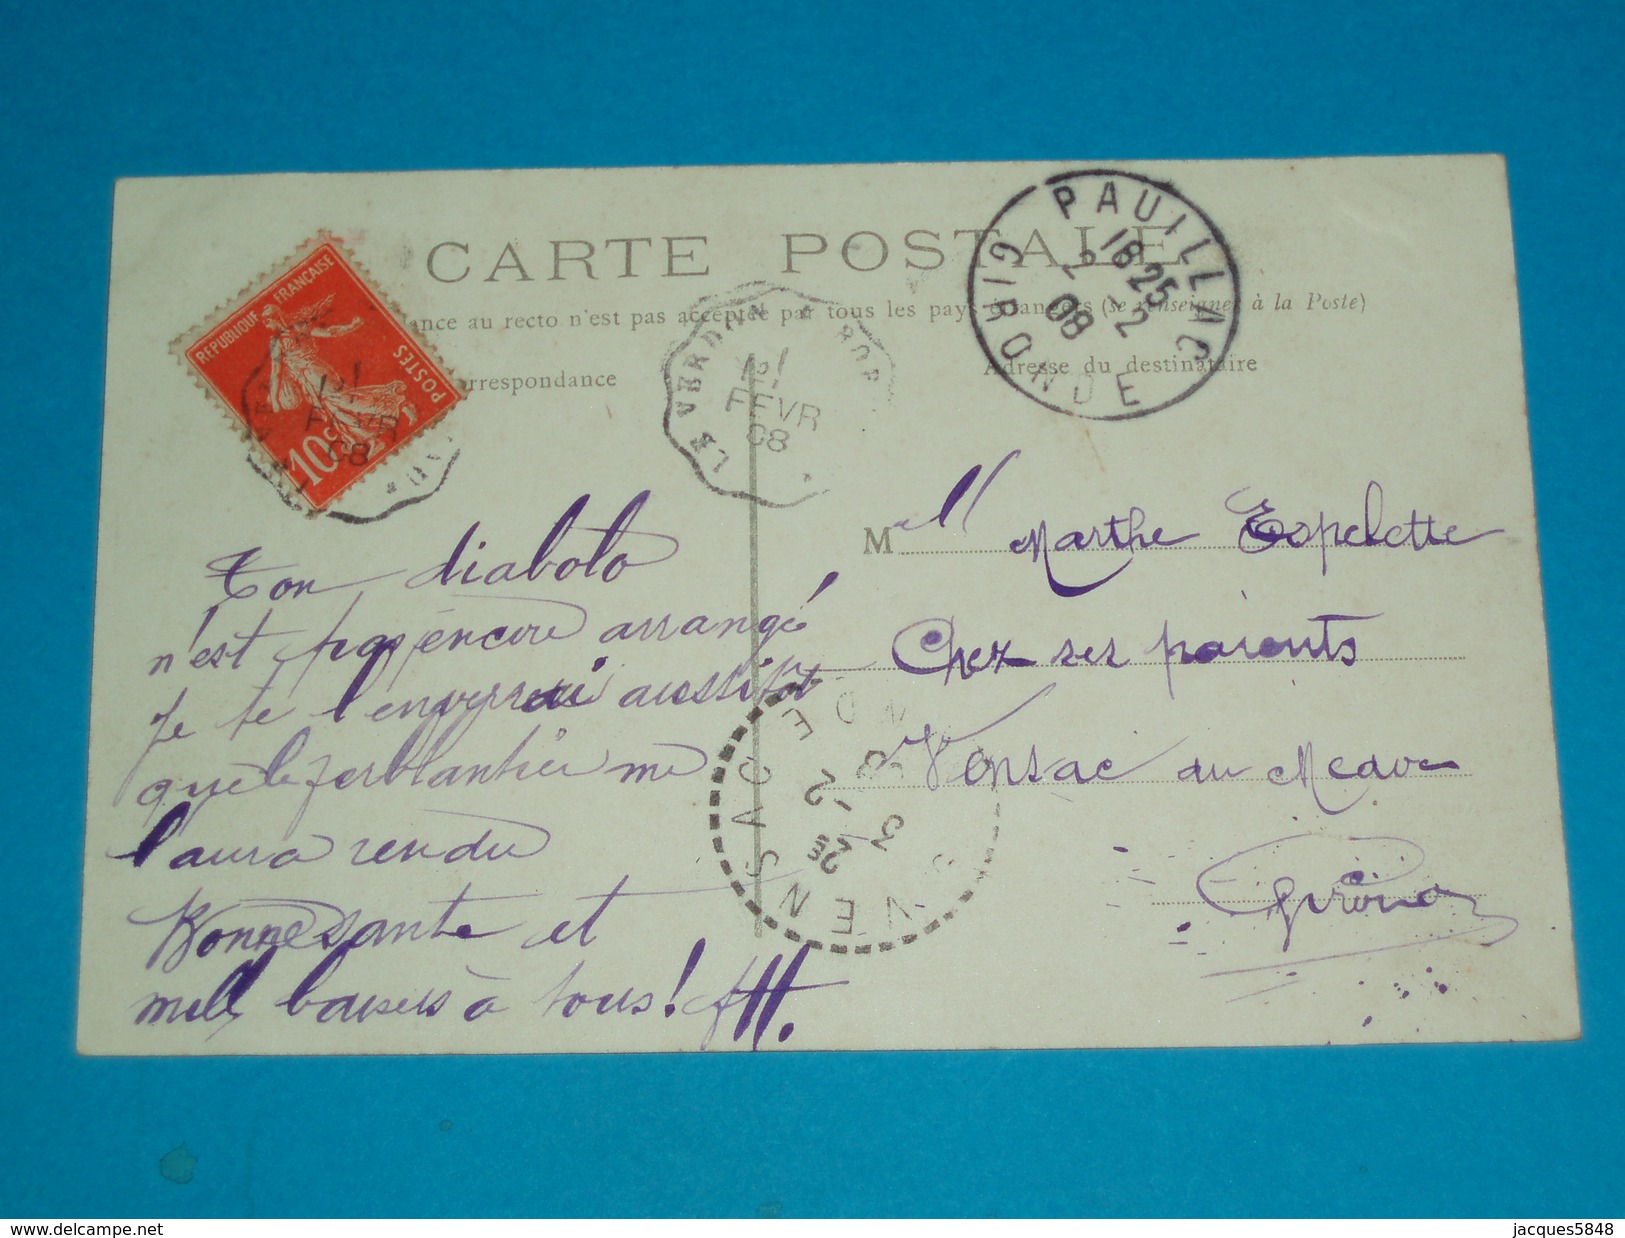 CARTE POSTALE
ance au recto n'est pas acceptée par tous les pays étrangers (se renseigner à la Poste)
orrespondance
Adresse du destinataire
REPUBLIQUE FRANÇAISE
POSTES
10c
1
FEVR
08
LE VERDON A BORD
1
FEVR
08
PAUILLAC
18 25
1 2
08
GIRONDE
Ton diabolo
n'est pas encore arrangé
je te l'enverrai aussitôt
que le ferblantier me
l'aura rendu
Bonne santé et
mille baisers à tous!
Mell Marthe Espelette
Chez ses parents
Vensac au Medoc
Gironde
VENSAC
GIRONDE
2E
2